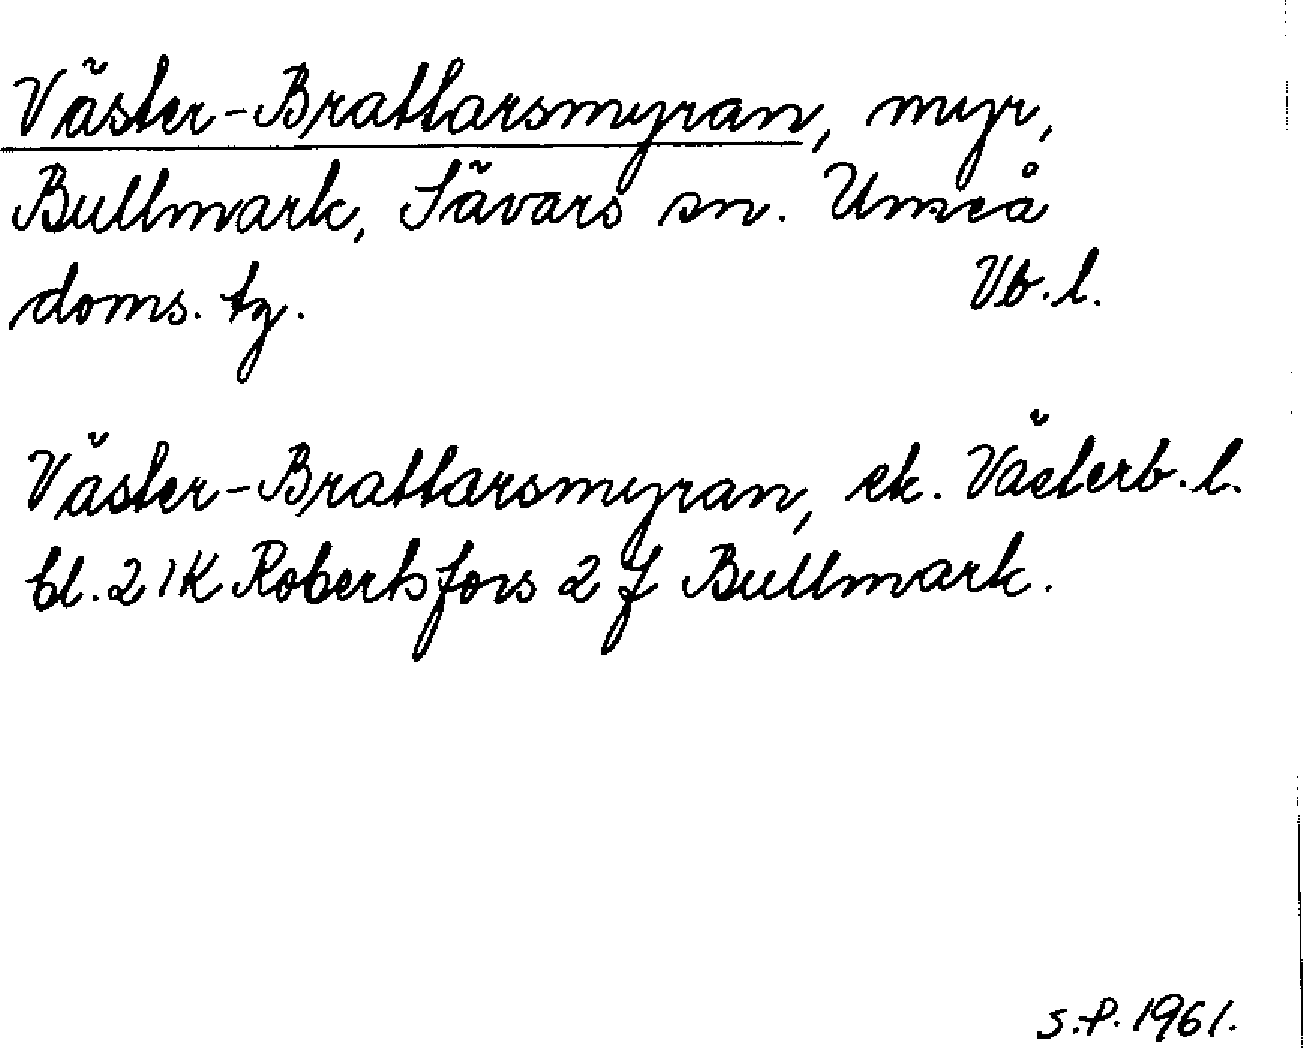 Väster-Brattarsmyran, myr,
Bullmark, Sävars sn. Umeå
doms. tg. Vb. l.
Väster-Brattarsmyran, ek. Västerb. l.
bl. 21K Robertsfors 2 f Bullmark.
S.P. 1961.